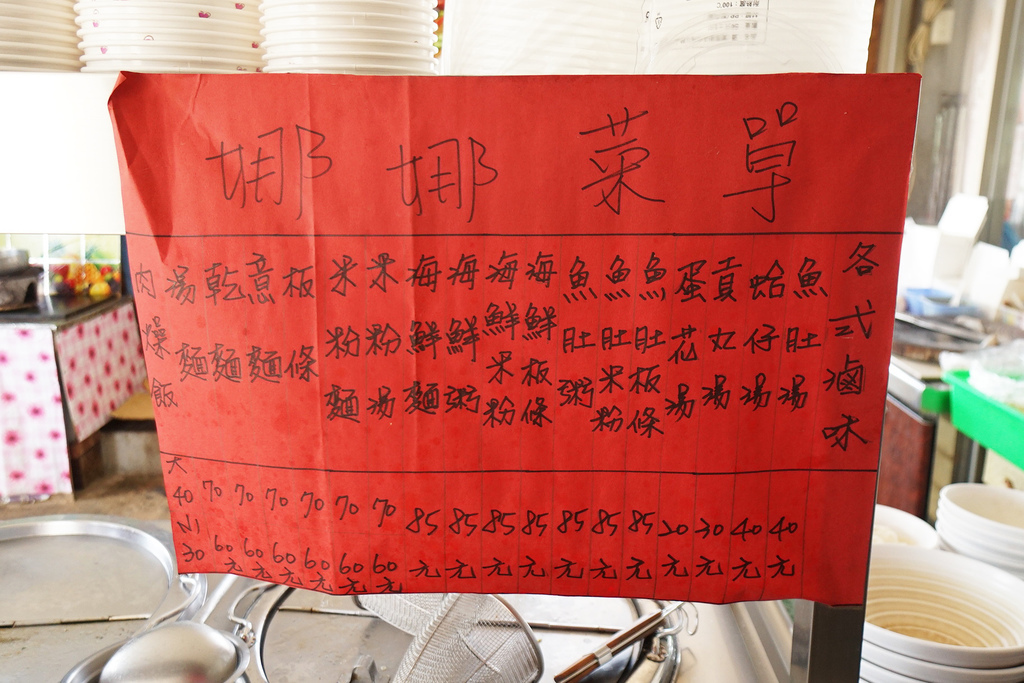 娜娜菜單
肉燥飯 大40 小30
湯麵 70 60元
乾麵 70 60元
意麵 70 60元
板條 70 60元
米粉麵 70 60元
米粉湯 70 60元
海鮮麵 85元
海鮮粥 85元
海鮮米粉 85元
海鮮板條 85元
魚肚粥 85元
魚肚米粉 85元
魚肚板條 85元
蛋花湯 20元
貢丸湯 30元
蛤仔湯 40元
魚肚湯 40元
各式滷味